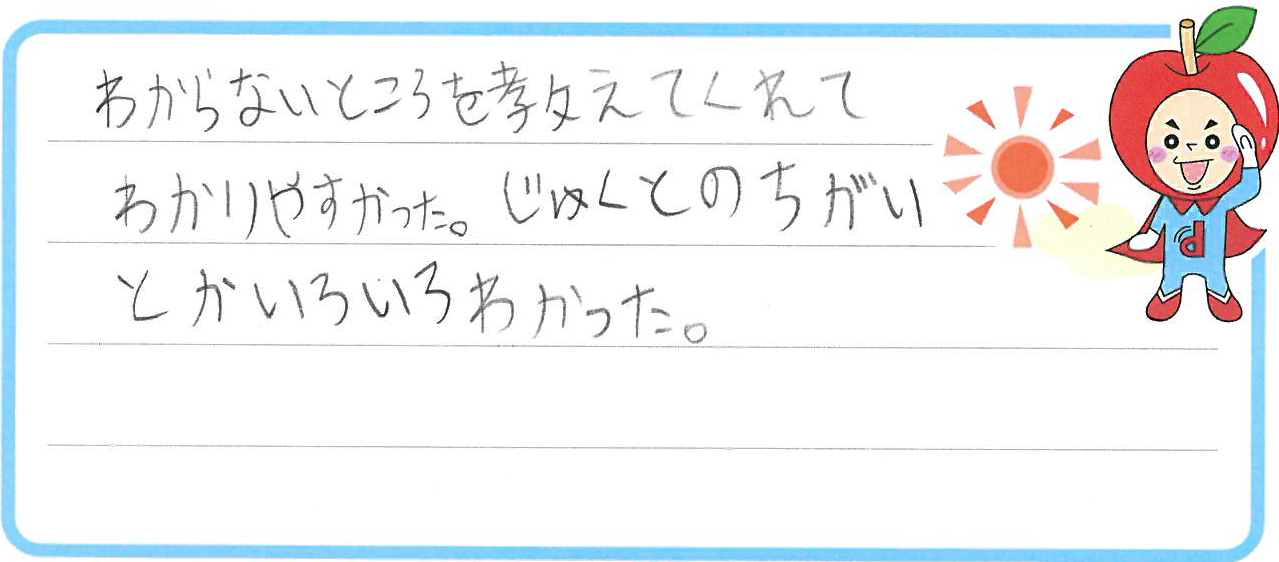 わからないところを教えてくれて
わかりやすかった。じゅくとのちがい
とかいろいろわかった。